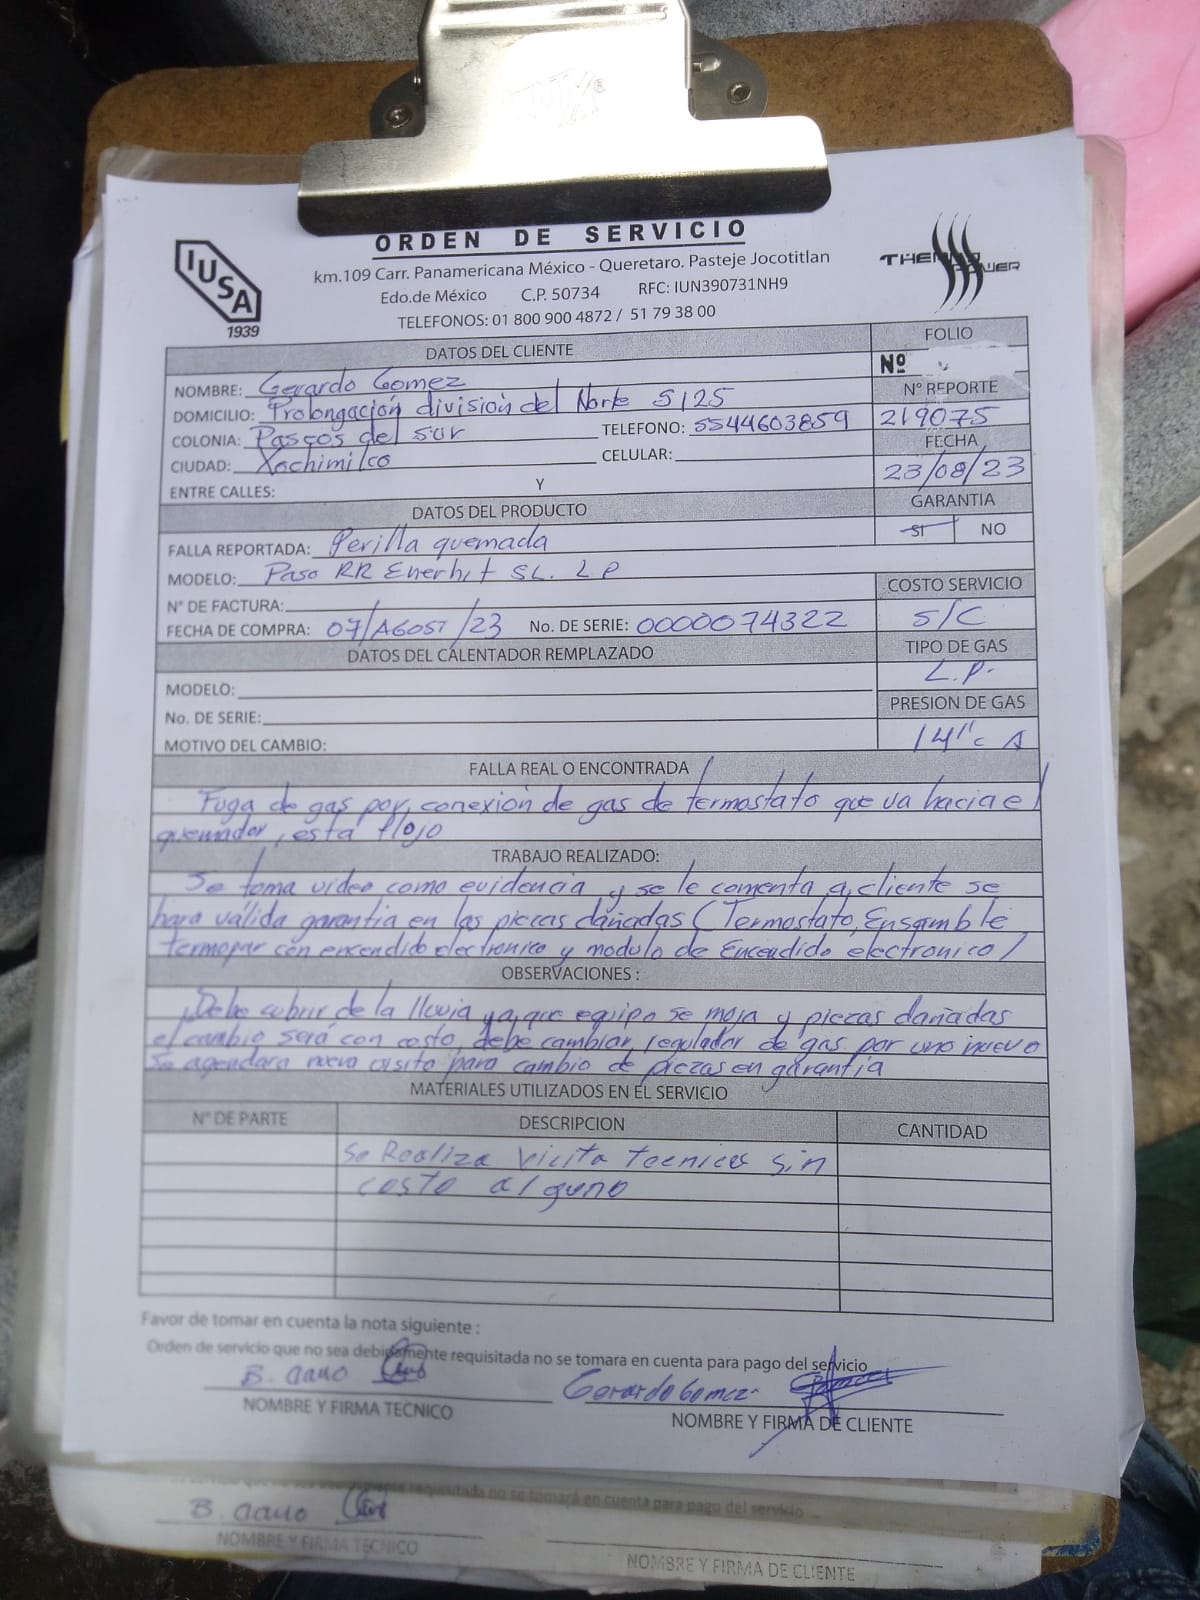 ORDEN DE SERVICIO
IUSA
1939
km.109 Carr. Panamericana México - Queretaro. Pasteje Jocotitlan
Edo.de México C.P. 50734 RFC: IUN390731NH9
TELEFONOS: 01 800 900 4872 / 51 79 38 00
DATOS DEL CLIENTE
FOLIO
Nº
NOMBRE: Gerardo Gomez
Nº REPORTE
DOMICILIO: Prolongación división del Norte 5125
219075
COLONIA: Paseos del sur TELEFONO: 5544603859
FECHA
CIUDAD: Xochimilco CELULAR:
23/08/23
ENTRE CALLES: Y
GARANTIA
DATOS DEL PRODUCTO
SI NO
FALLA REPORTADA: Perilla quemada
MODELO: Paso RR Enerhit SL. LP
COSTO SERVICIO
Nº DE FACTURA:
S/C
FECHA DE COMPRA: 07/AGOST/23 No. DE SERIE: 0000074322
TIPO DE GAS
DATOS DEL CALENTADOR REMPLAZADO
L.P.
MODELO:
PRESION DE GAS
No. DE SERIE:
14"c A
MOTIVO DEL CAMBIO:
FALLA REAL O ENCONTRADA
Fuga de gas por conexión de gas de termostato que va hacia el
quemador, esta flojo
TRABAJO REALIZADO:
Se toma video como evidencia y se le comenta a cliente se
hara válida garantia en las piezas dañadas (Termostato, Ensamble
termopar con encendido electronico y modulo de Encendido electronico)
OBSERVACIONES :
Debe cubrir de la lluvia ya que equipo se moja y piezas dañadas
el cambio será con costo, debe cambiar regulador de gas por uno nuevo
Se agendara nueva visita para cambio de piezas en garantia
MATERIALES UTILIZADOS EN EL SERVICIO
Nº DE PARTE DESCRIPCION CANTIDAD
Se Realiza vicita tecnica sin
costo alguno
Favor de tomar en cuenta la nota siguiente :
Orden de servicio que no sea debidamente requisitada no se tomara en cuenta para pago del servicio
Gerardo Gomez
NOMBRE Y FIRMA TECNICO
NOMBRE Y FIRMA DE CLIENTE
requisitada no se tomará en cuenta para pago del servicio
NOMBRE Y FIRMA TECNICO
NOMBRE Y FIRMA DE CLIENTE